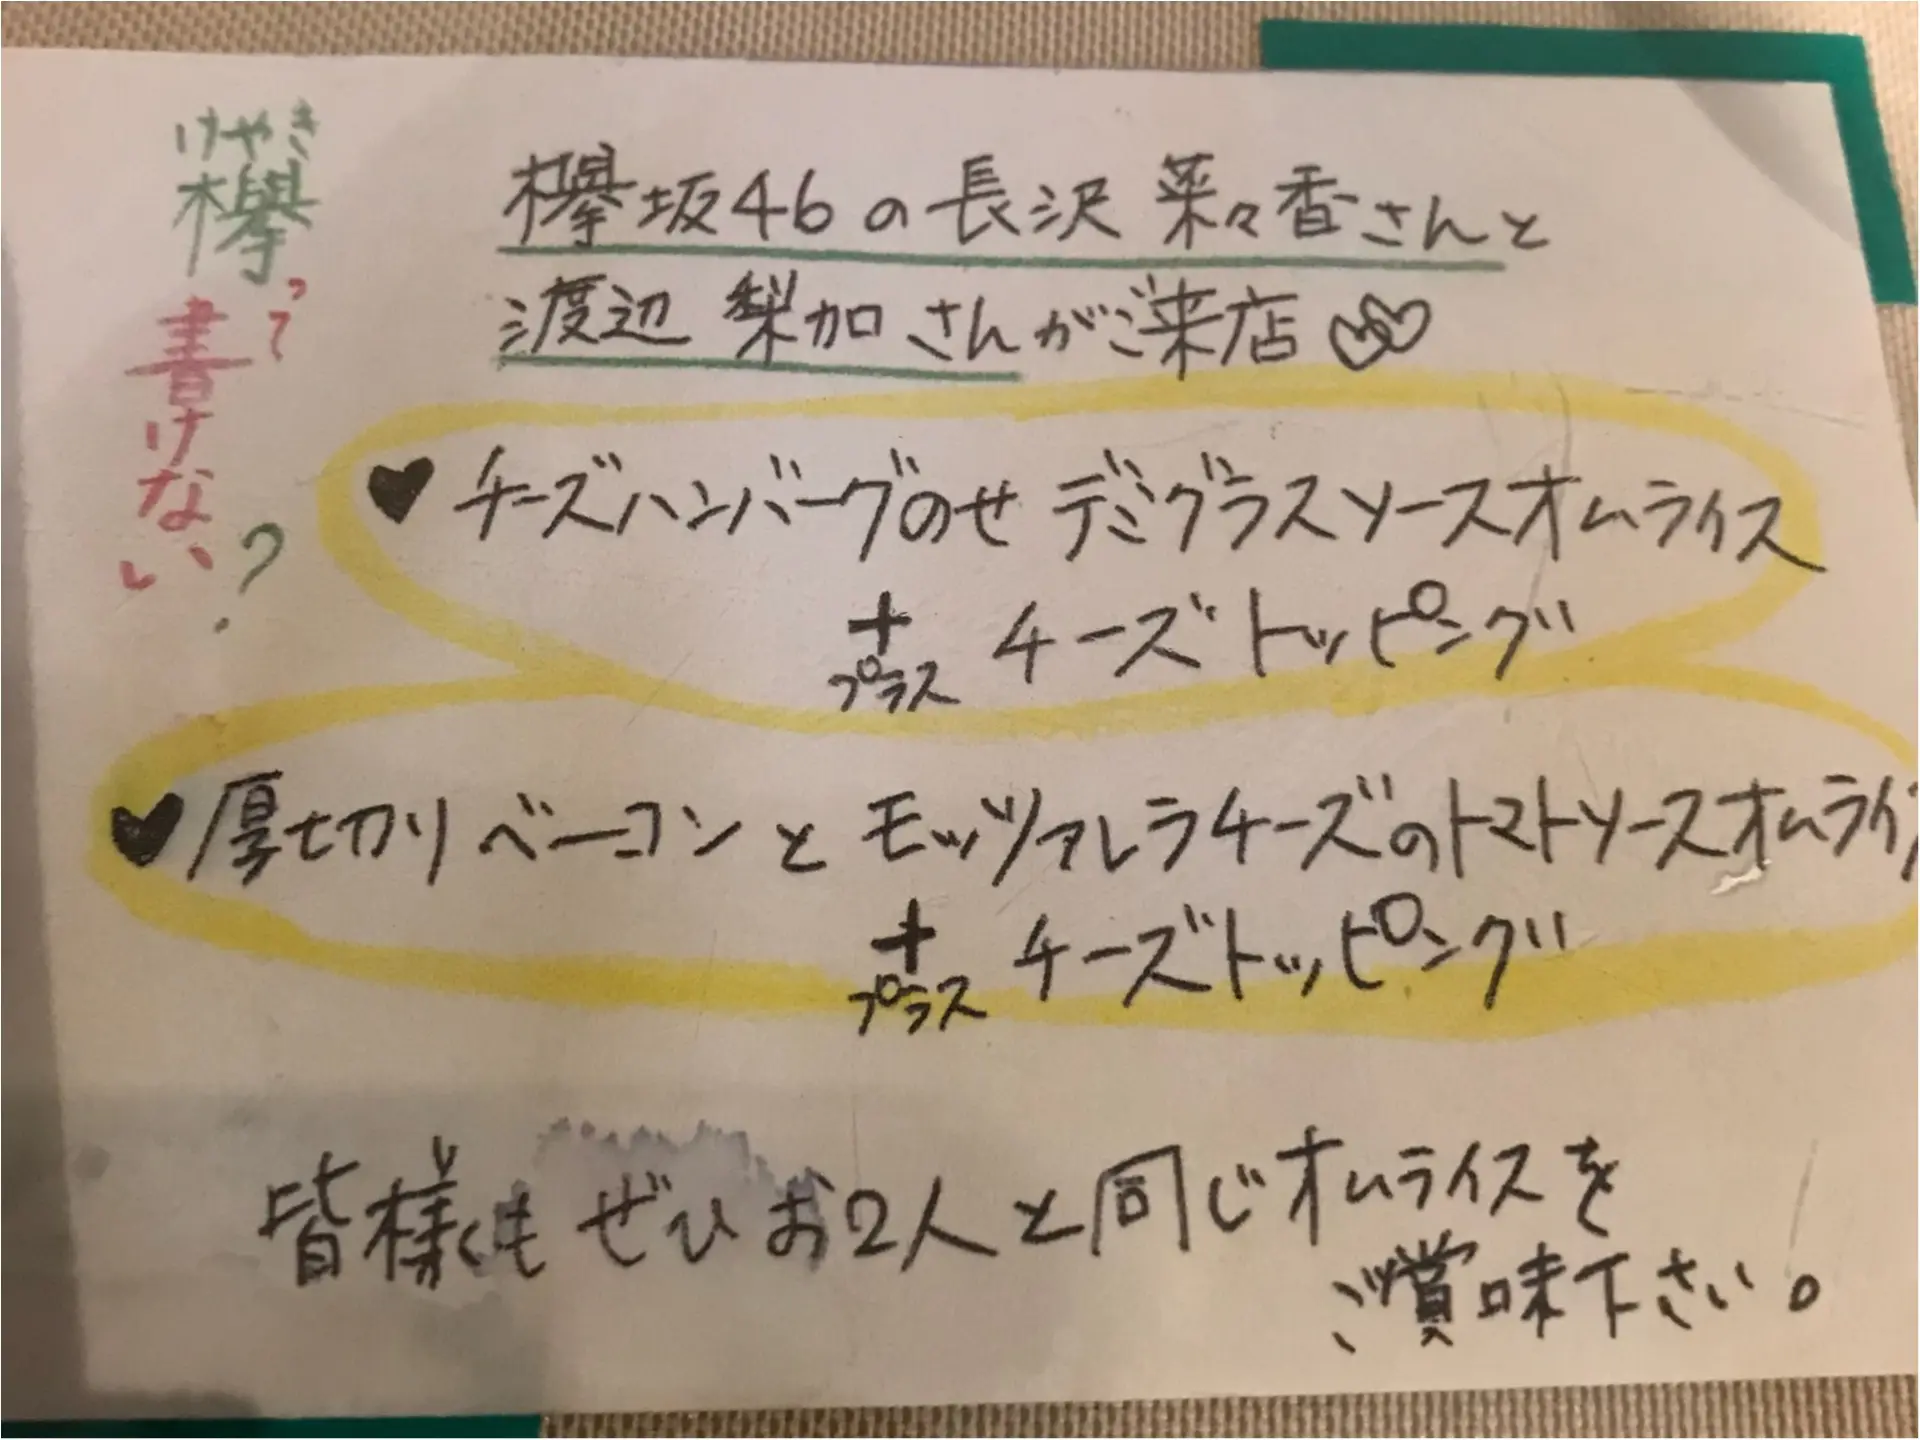 けやき
欅って
書けない?
欅坂46の長沢 菜々香さんと
渡辺 梨加さんがご来店
♥チーズハンバーグのせ デミグラスソースオムライス
+プラス チーズトッピング
♥厚切りベーコンとモッツァレラチーズのトマトソースオムライ
+プラス チーズトッピング
皆様もぜひお2人と同じオムライスを
ご賞味下さい。